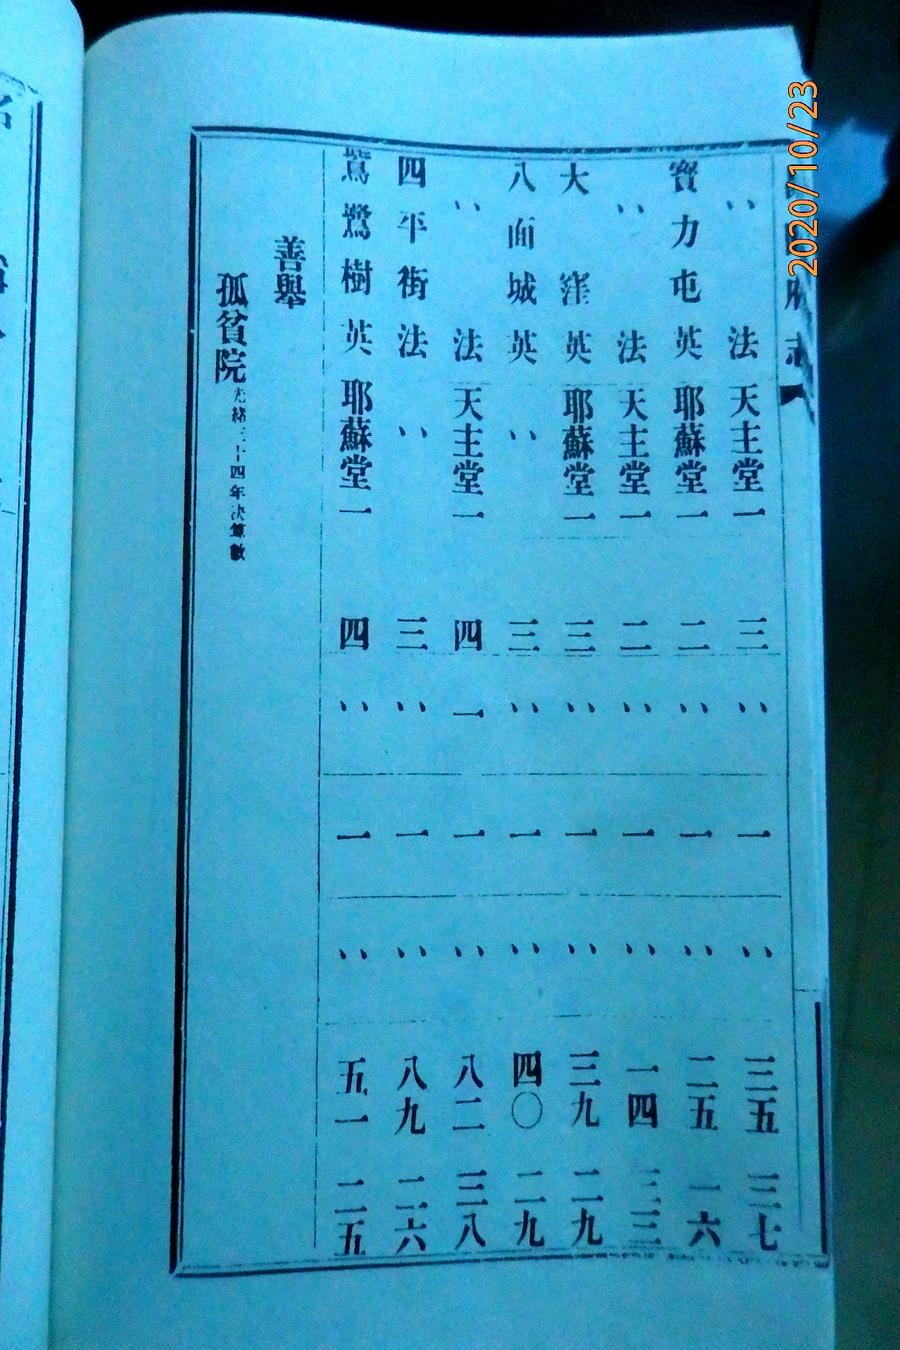 2020/10/23
府志
〃 法 天主堂 一 三 〃 一 〃 三五 三七
寶力屯 英 耶蘇堂 一 二 〃 一 〃 二五 一六
〃 法 天主堂 一 二 〃 一 〃 一四 三三
大窪 英 耶蘇堂 一 三 〃 一 〃 三九 二九
八面城 英 〃 三 〃 一 〃 四〇 二九
〃 法 天主堂 一 四 一 一 〃 八二 三八
四平街 法 〃 三 〃 一 〃 八九 二六
鴜鷺樹 英 耶蘇堂 一 四 〃 一 〃 五一 二五
善舉
孤貧院 光緒三十四年決算數